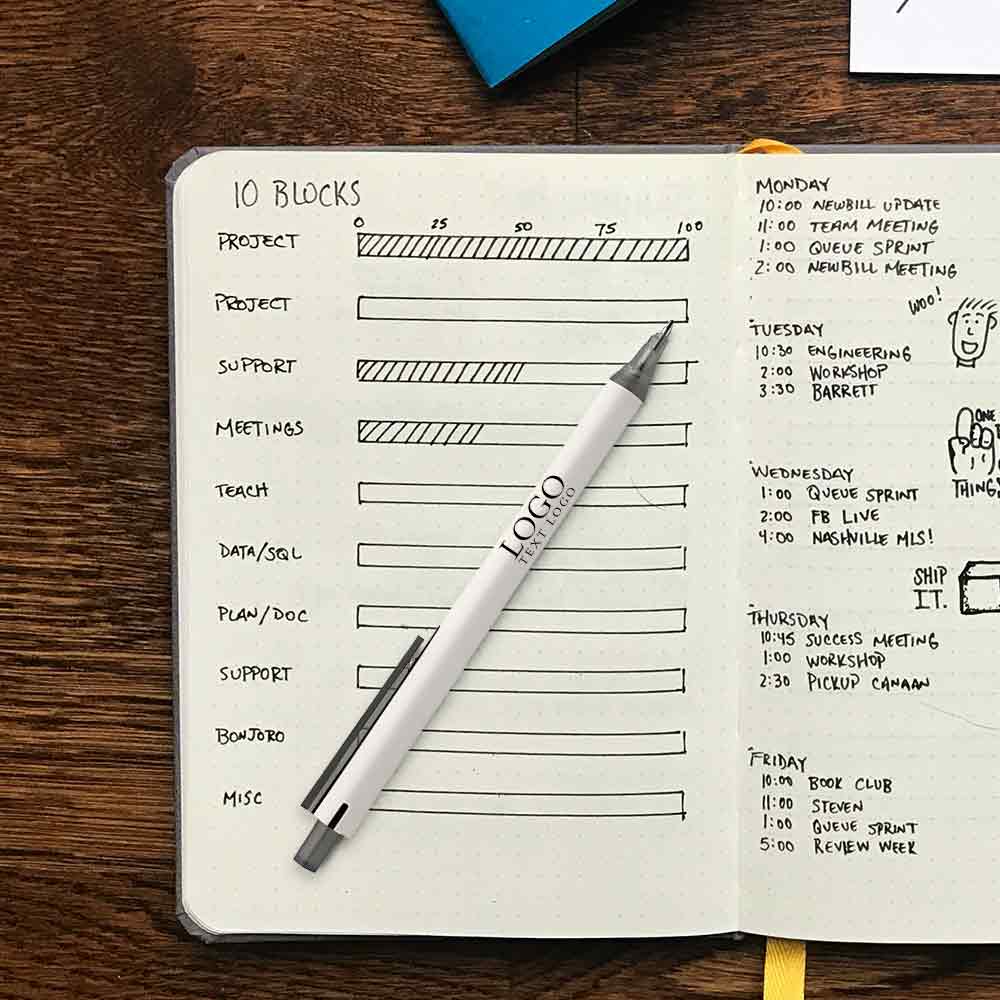 10 BLOCKS
0 25 50 75 100
PROJECT
PROJECT
SUPPORT
MEETINGS
TEACH
DATA/SQL
PLAN/DOC
SUPPORT
BONJORO
MISC
LOGO
TEXT LOGO
MONDAY
10:00 NEWBILL UPDATE
11:00 TEAM MEETING
1:00 QUEUE SPRINT
2:00 NEWBILL MEETING
WOO!
TUESDAY
10:30 ENGINEERING
2:00 WORKSHOP
3:30 BARRETT
ONE
THING
WEDNESDAY
1:00 QUEUE SPRINT
2:00 FB LIVE
4:00 NASHVILLE MLS!
SHIP
IT.
THURSDAY
10:45 SUCCESS MEETING
1:00 WORKSHOP
2:30 PICKUP CANAAN
FRIDAY
10:00 BOOK CLUB
11:00 STEVEN
1:00 QUEUE SPRINT
5:00 REVIEW WEEK